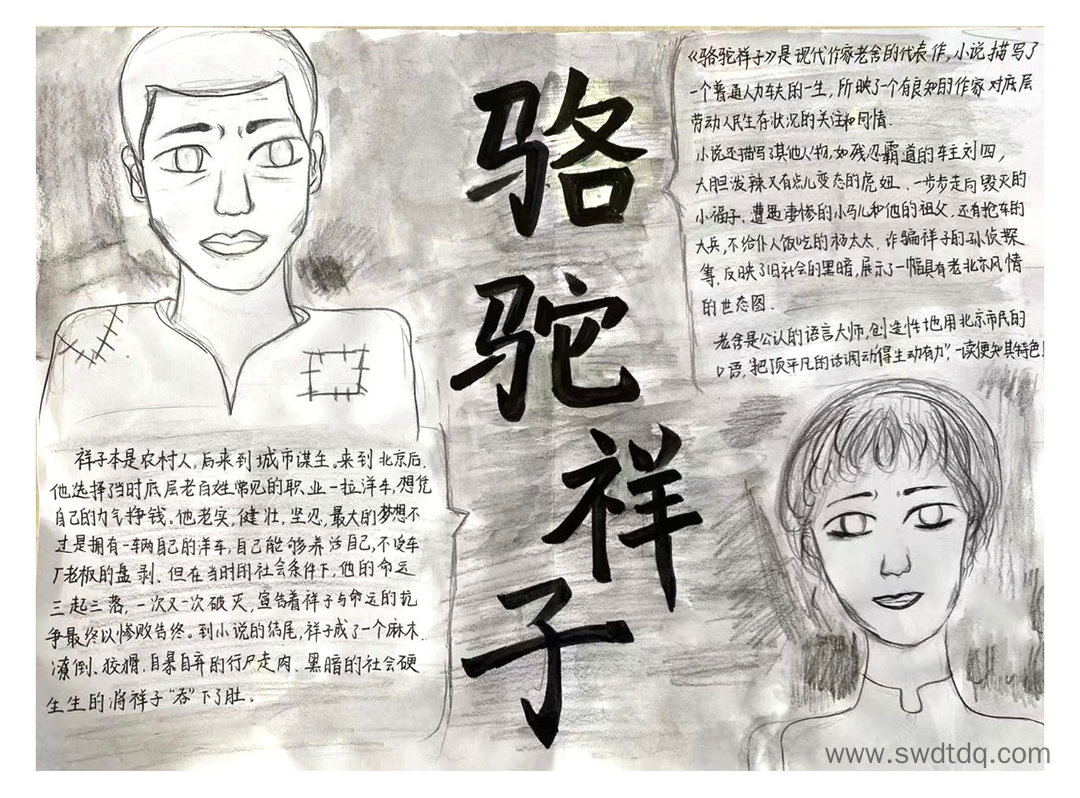 骆驼祥子
《骆驼祥子》是现代作家老舍的代表作,小说描写了
一个普通人力车夫的一生,所映了一个有良知的作家对底层
劳动人民生存状况的关注和同情.
小说还描写了其他人物,如残忍霸道的车主刘四,
大胆泼辣又有点儿变态的虎妞、一步步走向毁灭的
小福子、遭遇凄惨的小马儿和他的祖父,还有抢车的
大兵,不给仆人饭吃的杨太太,诈骗祥子的孙侦探
等,反映了旧社会的黑暗,展示了一幅具有老北京风情
的世态图.
老舍是公认的语言大师,创造性地用北京市民的
口语,"把顶平凡的话调动得生动有力",一读便知其特色!
祥子本是农村人,后来到城市谋生。来到北京后,
他选择了当时底层老百姓常见的职业—拉洋车,想凭
自己的力气挣钱。他老实,健壮,坚忍,最大的梦想不
过是拥有一辆自己的洋车,自己能够养活自己,不受车
厂老板的盘剥、但在当时的社会条件下,他的命运
三起三落,一次又一次破灭,宣告着祥子与命运的抗
争最终以惨败告终。到小说的结尾,祥子成了一个麻木、
潦倒、狡猾、自暴自弃的行尸走肉、黑暗的社会硬
生生的将祥子"吞"下了肚。
www.swdtdq.com